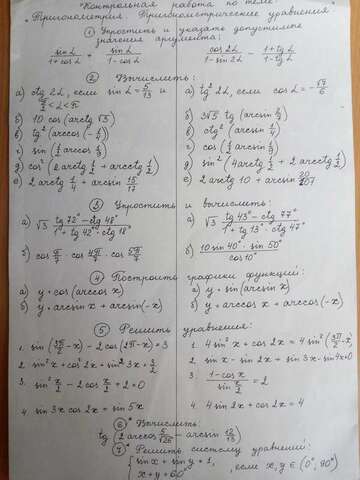 "Контрольная работа по теме:
"Тригонометрия. Тригонометрические уравнения"
① Упростить и указать допустимые
значения аргумента:
sin α / (1+cos α) + sin α / (1-cos α)
cos 2α / (1-sin 2α) - (1+tg α) / (1-tg α)
② Вычислить:
а) ctg 2α, если sin α = 5/13 и
π/2 < α < π
а) tg² 2α, если cos α = -√7/6
б) 10 cos (arctg √3)
б) 3√5 tg (arcsin 2/3)
в) tg² (arccos (-1/4))
г) sin (1/2 arccos 1/3)
д) cos² (2 arctg 1/2 + arcctg 1/2)
д) sin² (4 arctg 1/2 + 2 arcctg 1/2)
е) 2 arctg 1/4 + arcsin 15/17
е) 2 arctg 10 +
③ Упростить и вычислить:
а) √3 (tg 72° - ctg 48°) / (1 + tg 42° ctg 18°)
а) √3 (tg 43° - ctg 77°) / (1 + tg 13° ctg 47°)
б) cos π/7 · cos 4π/7 · cos 5π/7
б) 10 sin 40° · sin 50° / cos 10°
④ Построить графики функций:
а) y = cos (arccos x)
а) y = sin (arcsin x)
б) y = arcsin x + arcsin (-x)
б) y = arccos x + arccos (-x)
⑤ Решить уравнения:
1. sin (3π/2 - x) - 2 cos (2π - x) = 3
1. 4 sin² x + cos x = 4 sin²
2. sin² x + cos² 2x + sin² 3x = 3/2
2. sin x - sin 2x + sin 3x - sin 4x = 0
3. sin² x/2 - 2 cos x/2 + 2 = 0
3. (1 - cos x) / sin x/2 = 2
4. sin 3x cos 2x = sin 5x
4. 4 sin 2x + cos 2x = 4
⑥* Вычислить:
tg (2 arccos 5/√26 - arcsin 12/13)
⑦* Решить систему уравнений:
{ sin x + sin y = 1,
x + y = 60° , если x, y ∈ (0°, 90°)